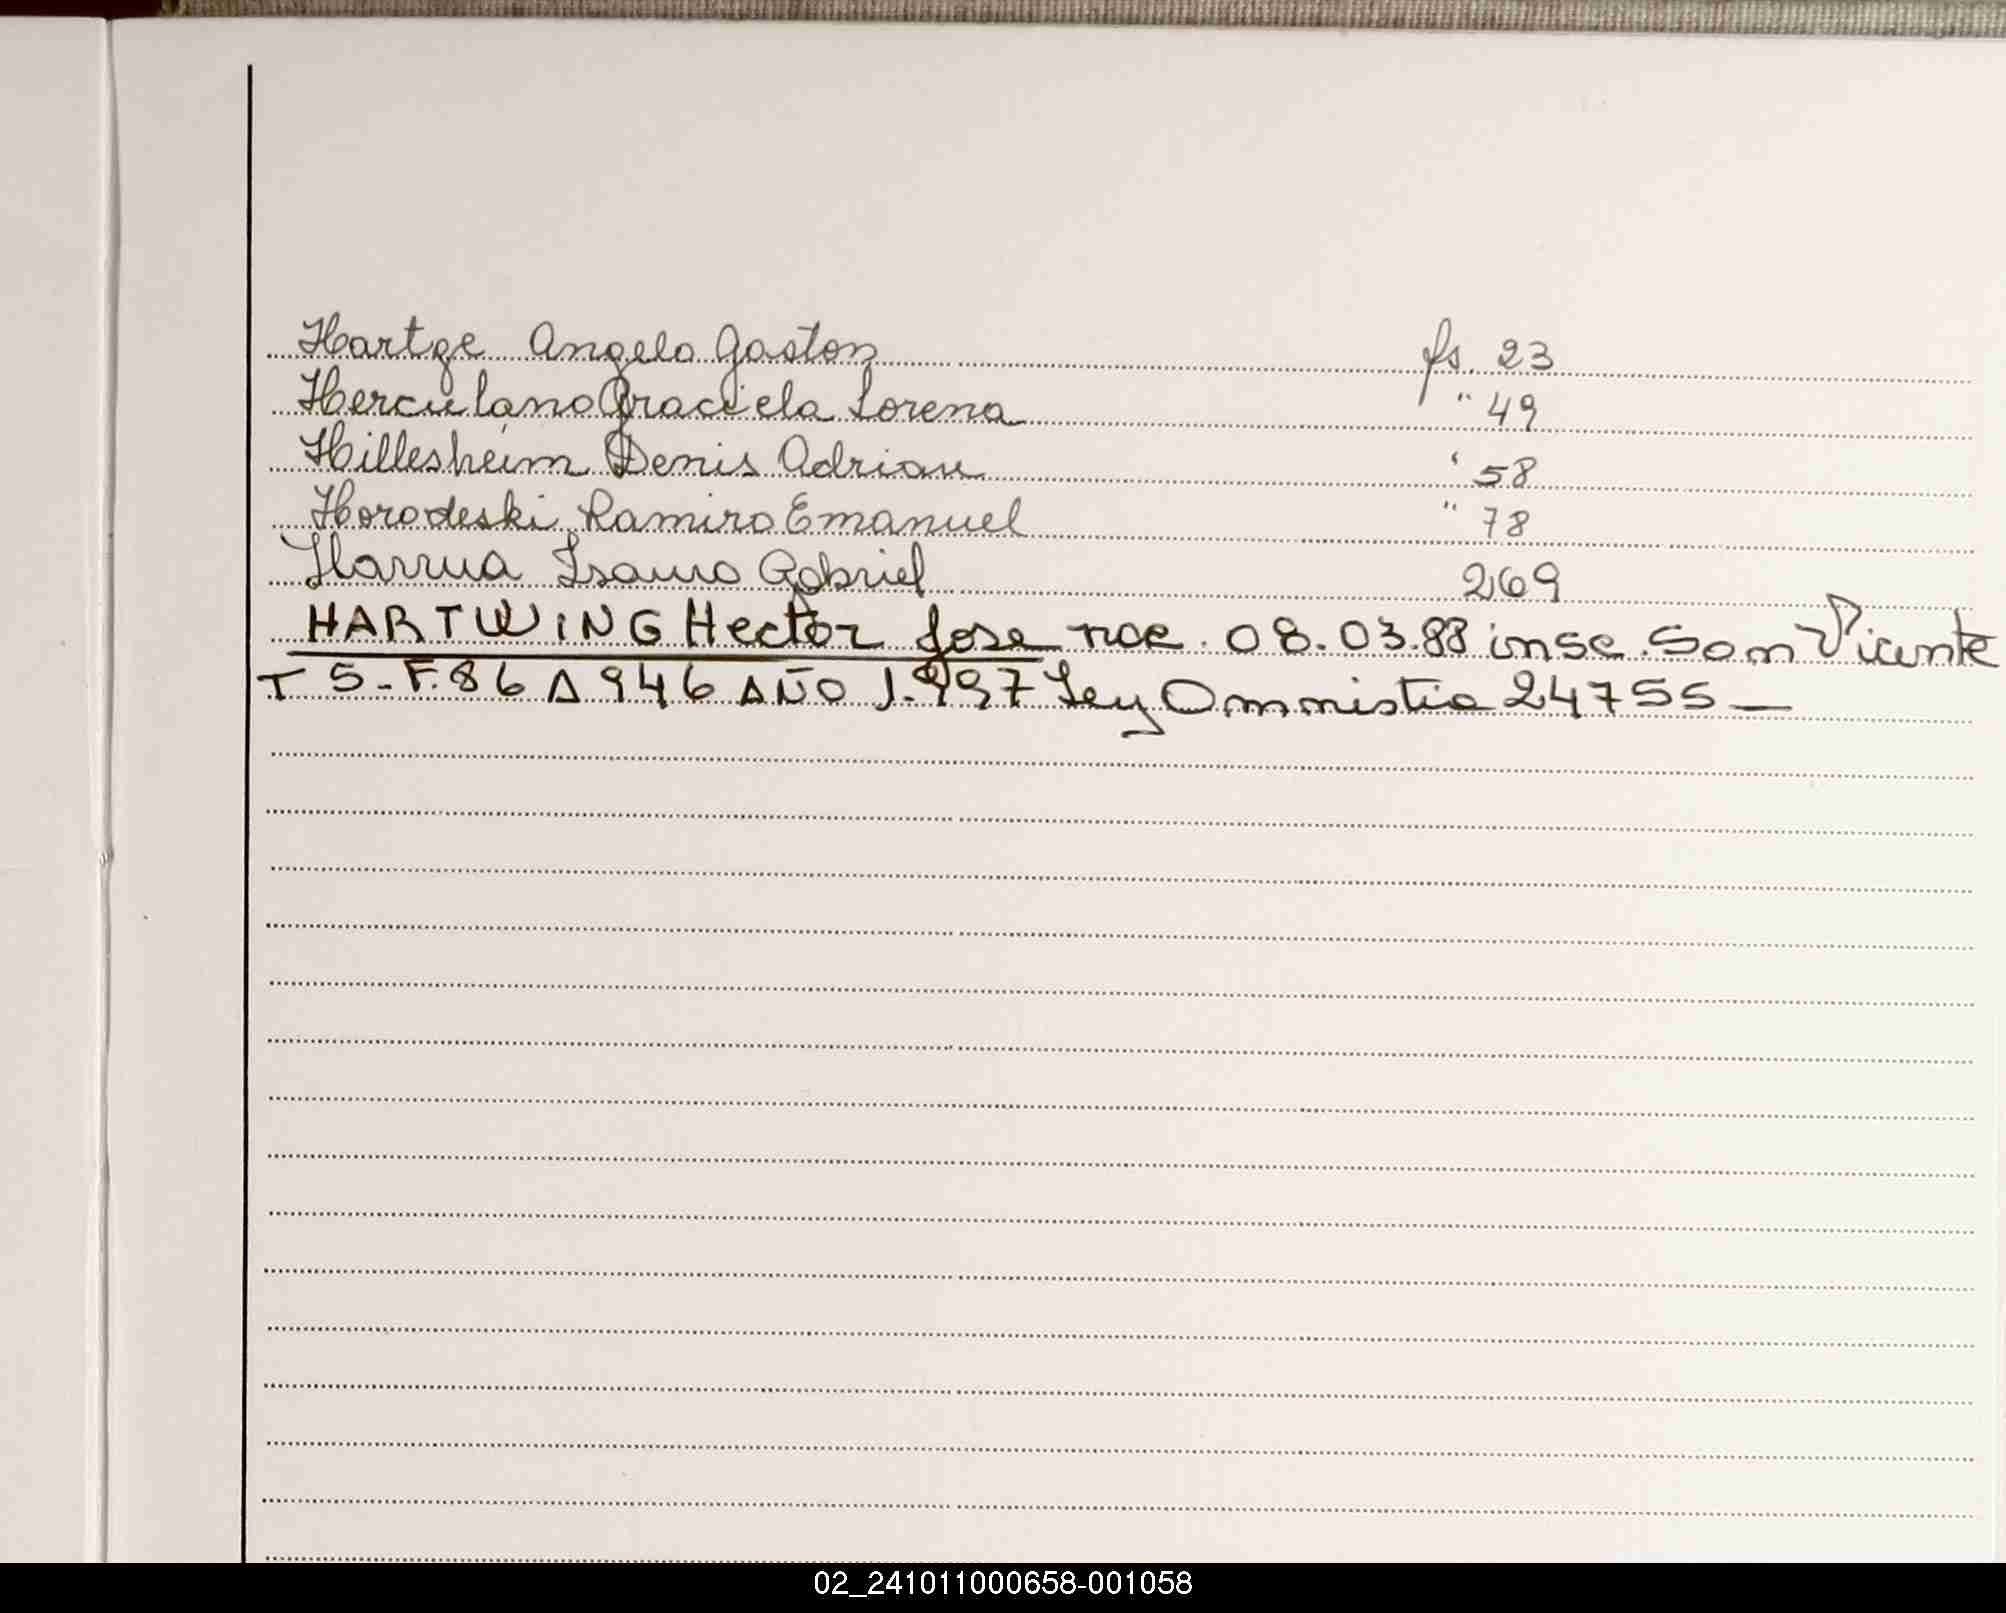 Hartge Angelo Gaston fs. 23
Herculano Graciela Lorena " 49
Hillesheim Denis Adrian ' 58
Horodeski Ramiro Emanuel " 78
Harrua Gabriel 269
HARTWING Hector Jose nac. 08.03.88 insc. San Vicente
T 5-F.86 A 946 AÑO 1.997 Ley Ommistia 24755 —
02_241011000658-001058